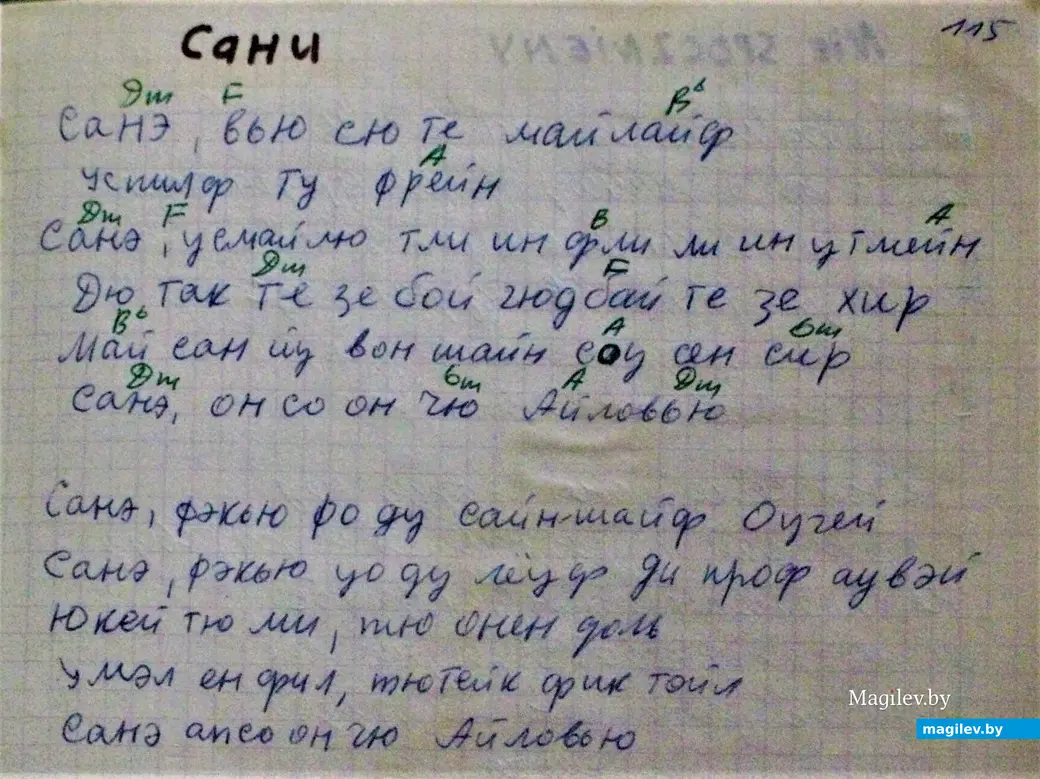 115
Сани
Dm F B6
Санэ, вью сю те майлайф
A
успилф ту фрейн
Dm F B A
Санэ, усмайлю тли ин фли ли ин утмейн
Dm F
Дю так те зе бой гюдбай те зе хир
B6 A Gm
Май сан йу вон шайн соу сен сир
Dm Gm A Dm
Санэ, он со он чю Айловью
Санэ, фэкью фо ду сайн-шайф Оугей
Санэ, фэкью уо ду леуф ди проф аувэй
Юкей тю ми, тю онен доль
умэл ен фил, тютейк фик тойл
Санэ апсо он чю Айловью
Magilev.by
magilev.by